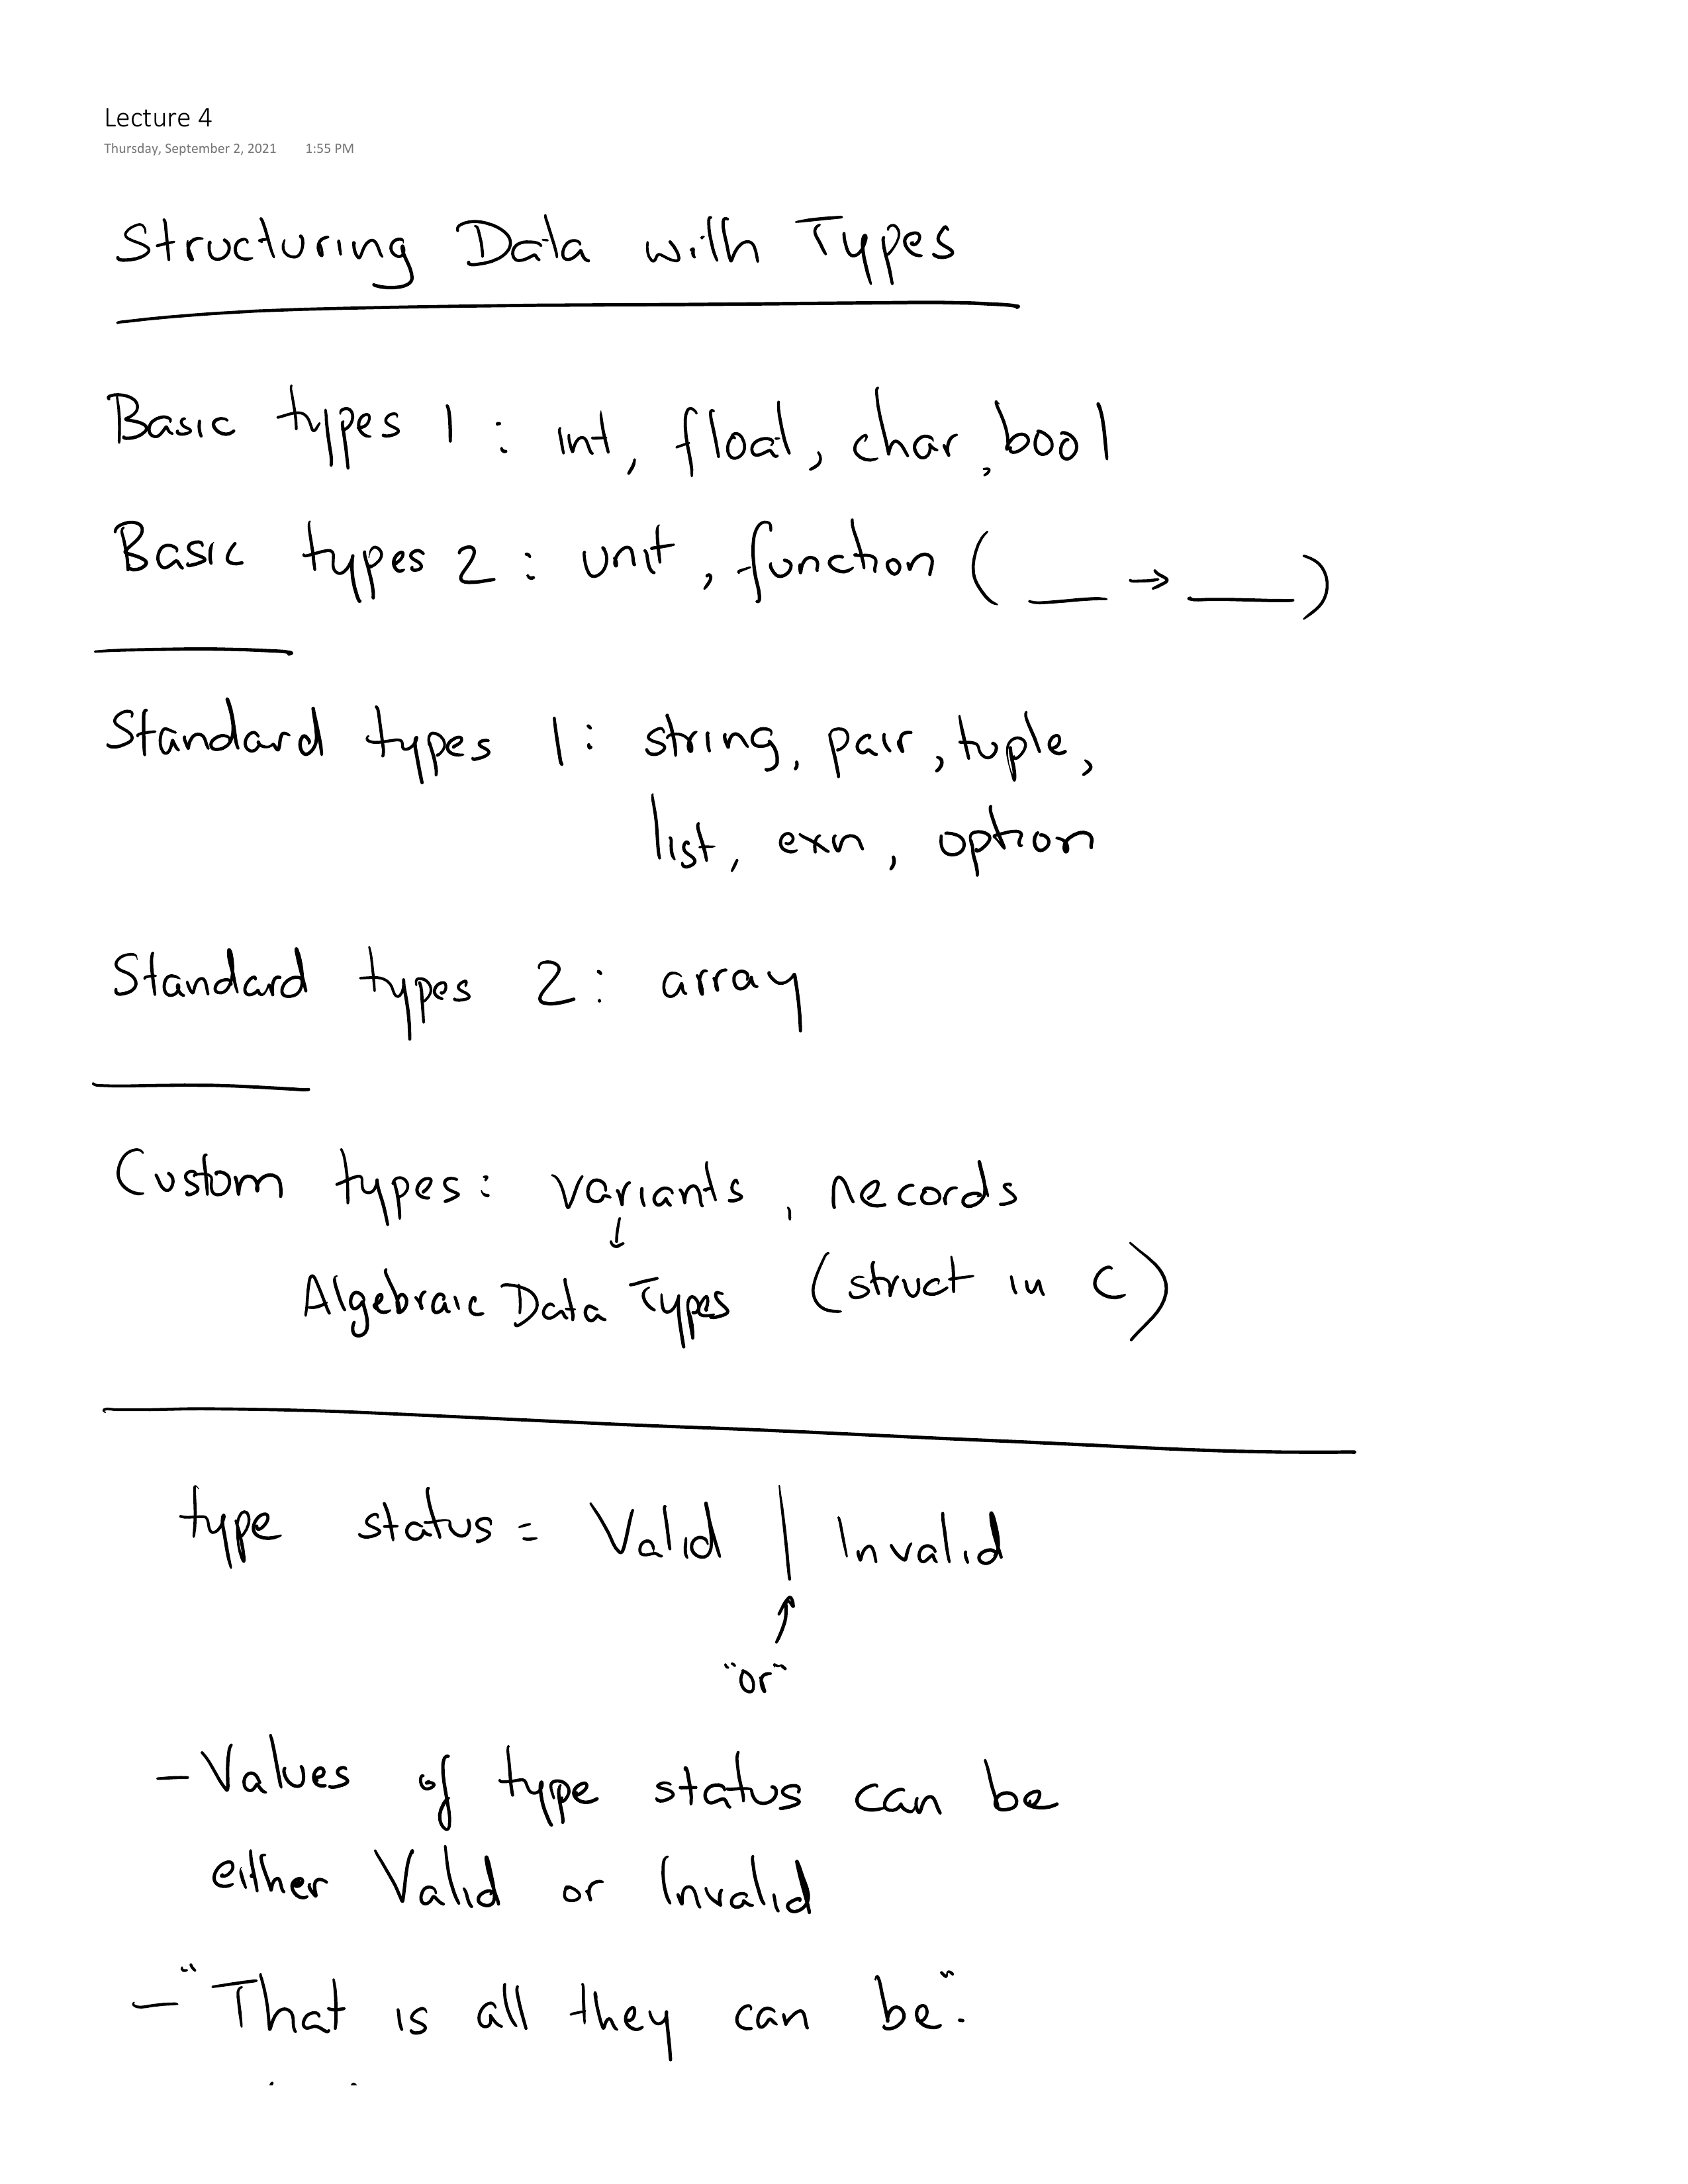 Lecture 4
Thursday, September 2, 2021 1:55 PM
Structuring Data with Types
Basic types 1 : int, float, char, bool
Basic types 2 : unit, function ( ___ → ___ )
Standard types 1 : string, pair, tuple,
list, exn, option
Standard types 2 : array
Custom types : variants, records
↓
Algebraic Data Types (struct in C)
type status = Valid | Invalid
↑
"or"
- Values of type status can be
either Valid or Invalid
- "That is all they can be".